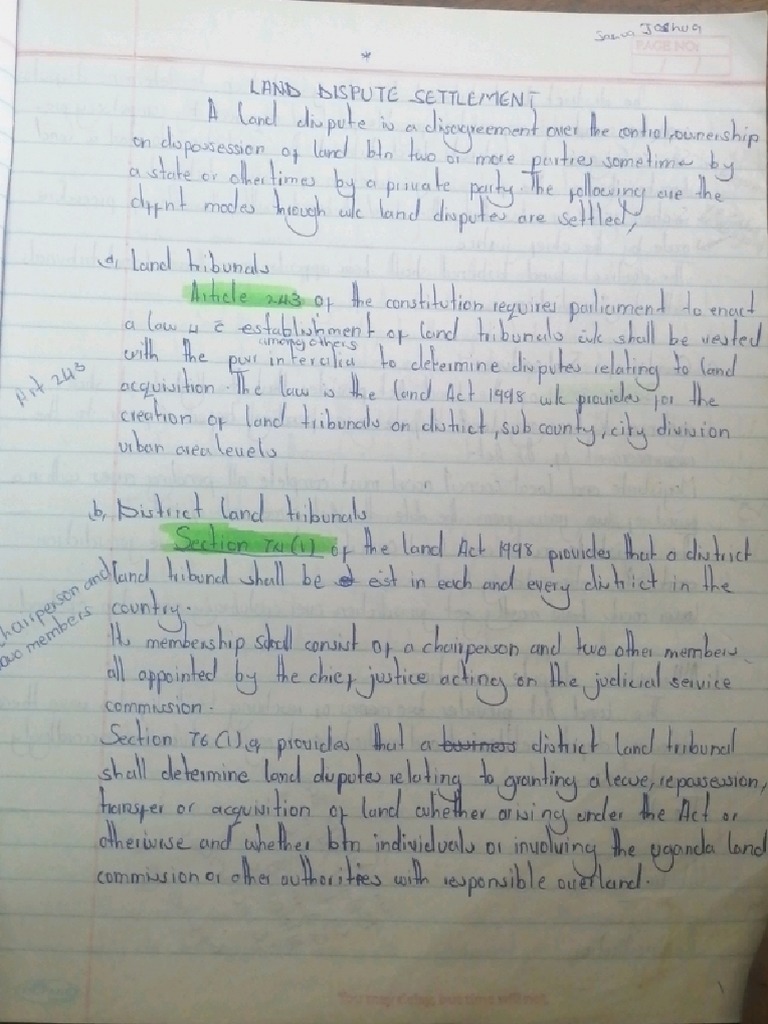 Joshua
PAGE NO:
*
LAND DISPUTE SETTLEMENT
A land dispute is a disagreement over the control, ownership
on dispossession of land btn two or more parties sometime by
a state or other times by a private party. The following are the
diffnt modes through wc land disputes are settled,
a, Land tribunals
Article 243 of the constitution requires parliament to enact
a law 4 c establishment of land tribunals wc shall be vested
among others
with the pwr intercilia to determine disputes relating to land
Art 243
acquisition. The law is the land Act 1998 wc provides for the
creation of land tribunals on district, sub county, city division
urban area levels
b, District land tribunals
Section 74(1) of the land Act 1998 provides that a district
land tribunal shall be est in each and every district in the
country.
Chairperson and
two members
The membership shall consist of a chairperson and two other members
all appointed by the chief justice acting on the judicial service
commission.
Section 76(1)a provides that a business district land tribunal
shall determine land disputes relating to granting a leave, repossession,
transfer or acquisition of land whether arising under the Act or
otherwise and whether btn individuals or involving the uganda land
commission or other authorities with responsible overland.